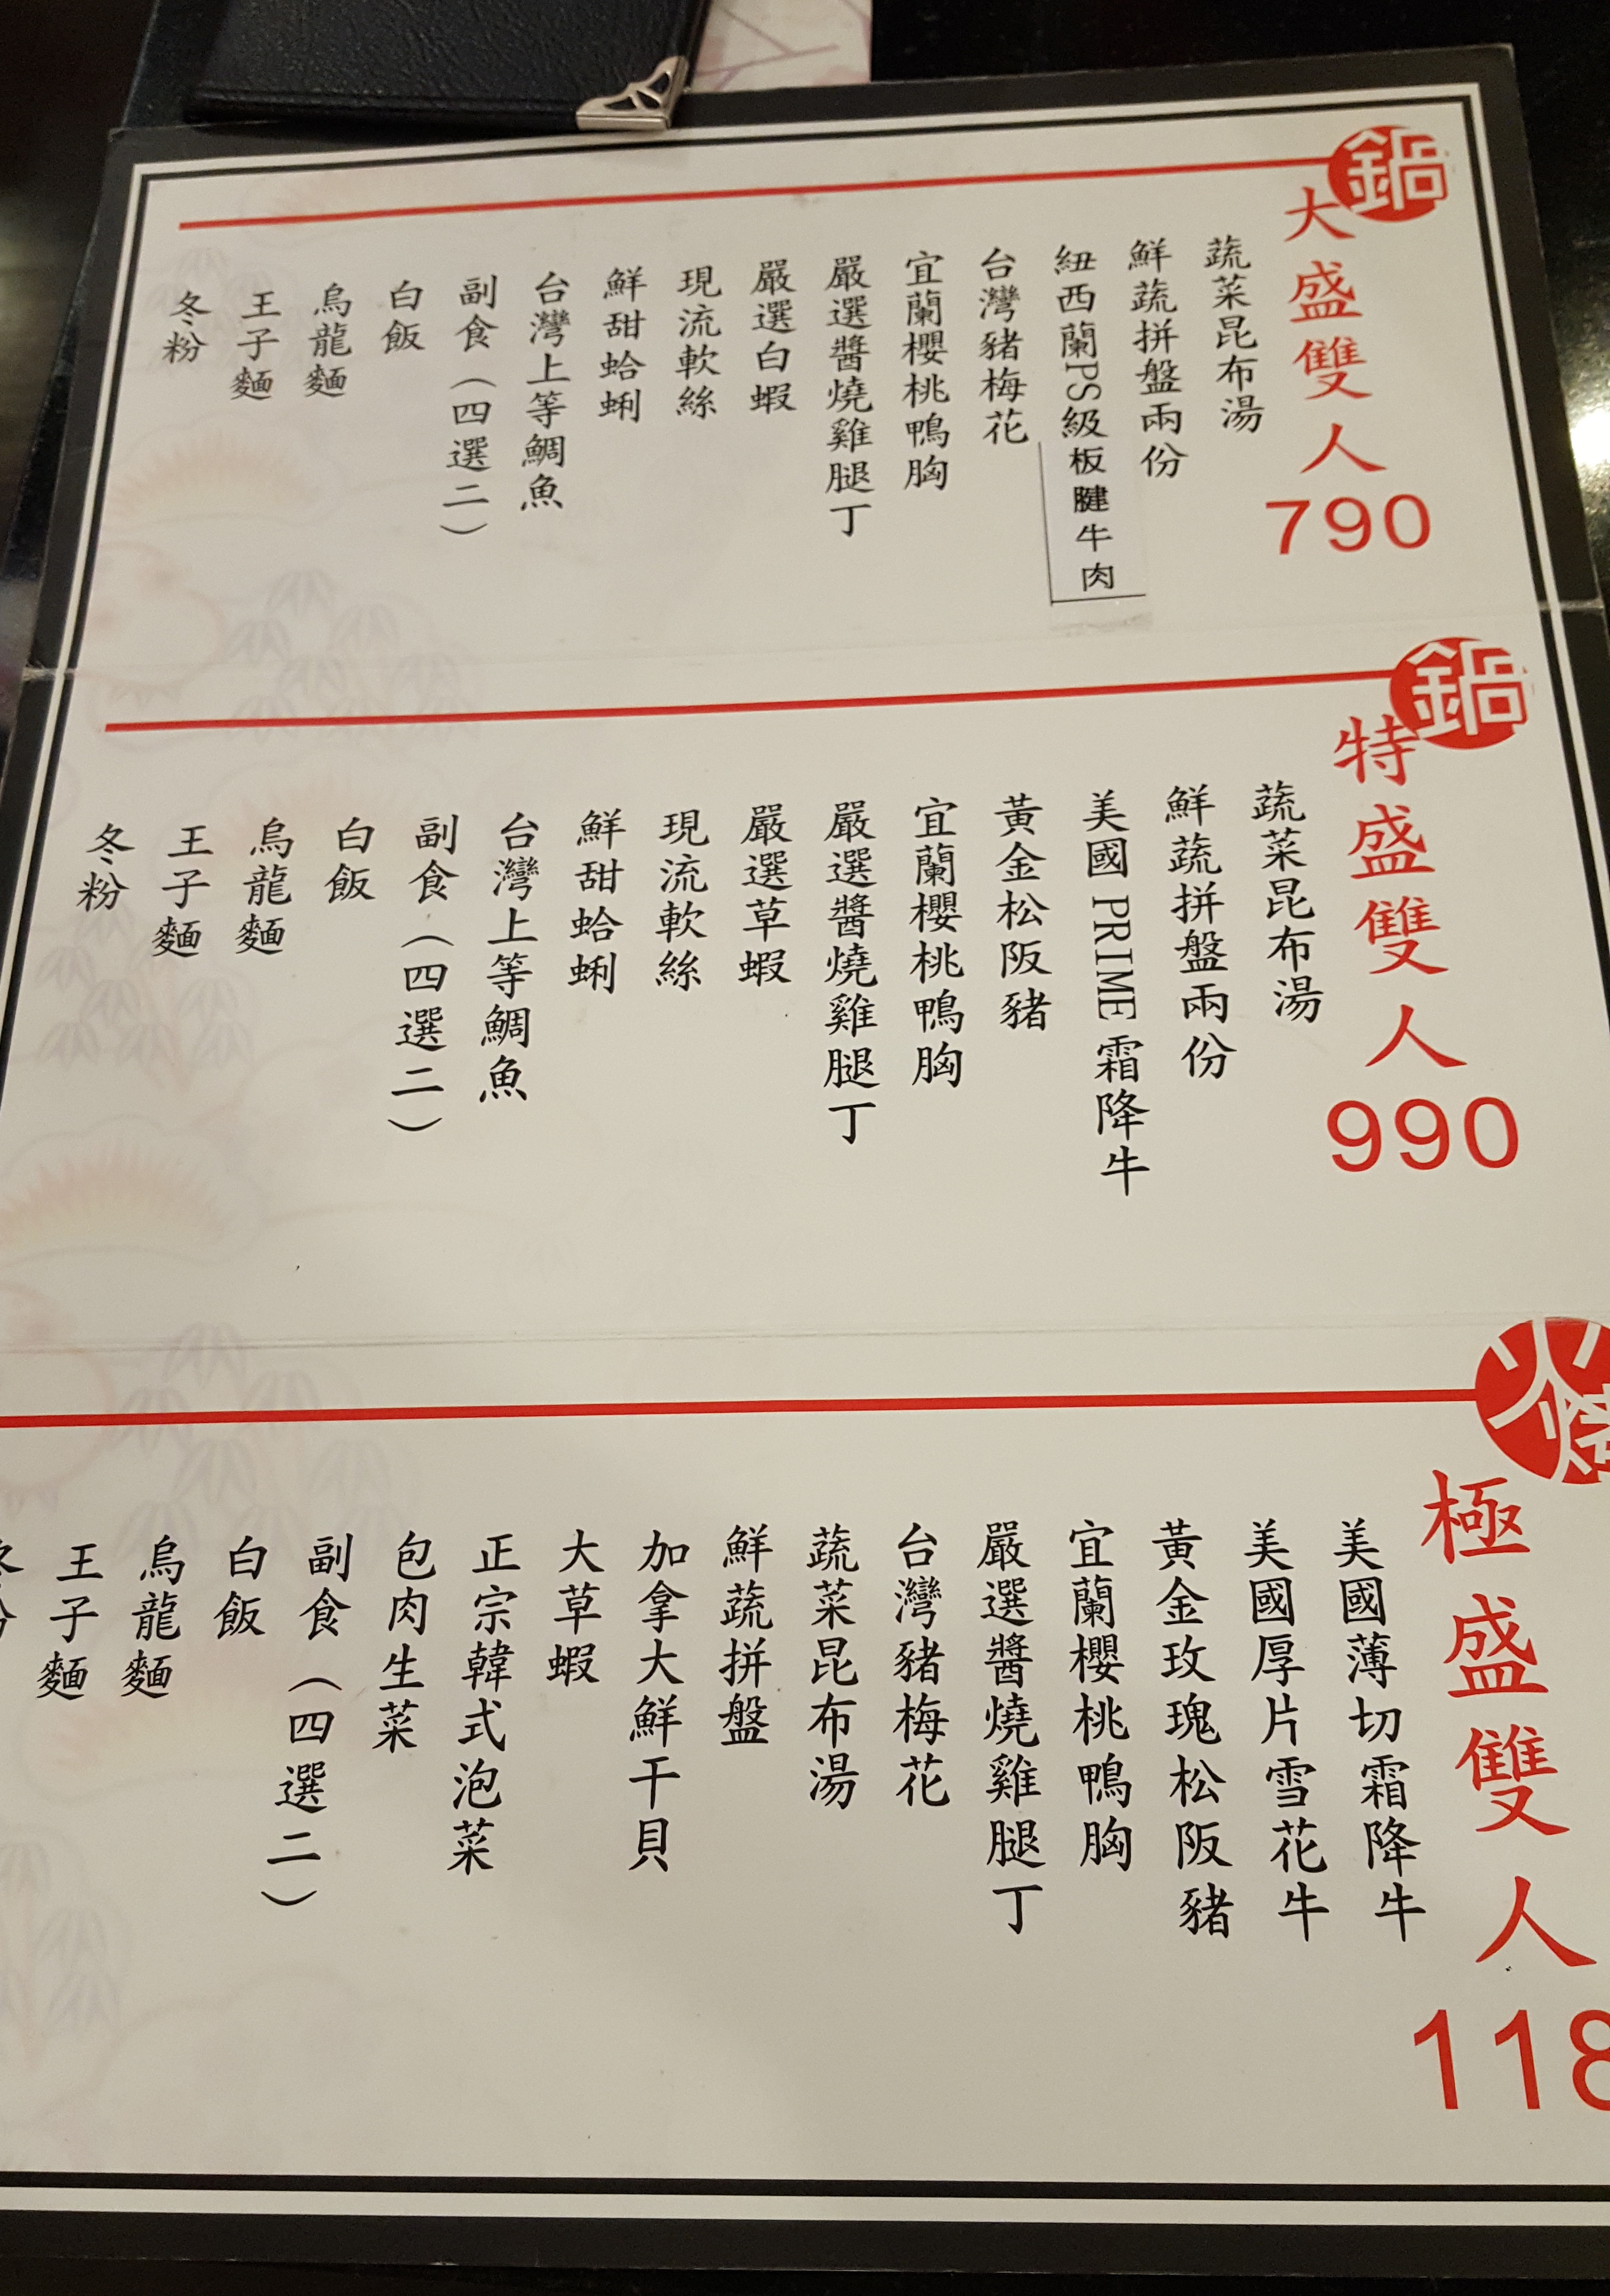 鍋
大盛雙人
790
蔬菜昆布湯
鮮蔬拼盤兩份
紐西蘭PS級板腱牛肉
台灣豬梅花
宜蘭櫻桃鴨胸
嚴選醬燒雞腿丁
嚴選白蝦
現流軟絲
鮮甜蛤蜊
台灣上等鯛魚
副食（四選二）
白飯
烏龍麵
王子麵
冬粉
鍋
特盛雙人
990
蔬菜昆布湯
鮮蔬拼盤兩份
美國 PRIME 霜降牛
黃金松阪豬
宜蘭櫻桃鴨胸
嚴選醬燒雞腿丁
嚴選草蝦
現流軟絲
鮮甜蛤蜊
台灣上等鯛魚
副食（四選二）
白飯
烏龍麵
王子麵
冬粉
火烤
極盛雙人
118
美國薄切霜降牛
美國厚片雪花牛
黃金玫瑰松阪豬
宜蘭櫻桃鴨胸
嚴選醬燒雞腿丁
台灣豬梅花
蔬菜昆布湯
鮮蔬拼盤
加拿大鮮干貝
大草蝦
正宗韓式泡菜
包肉生菜
副食（四選二）
白飯
烏龍麵
王子麵